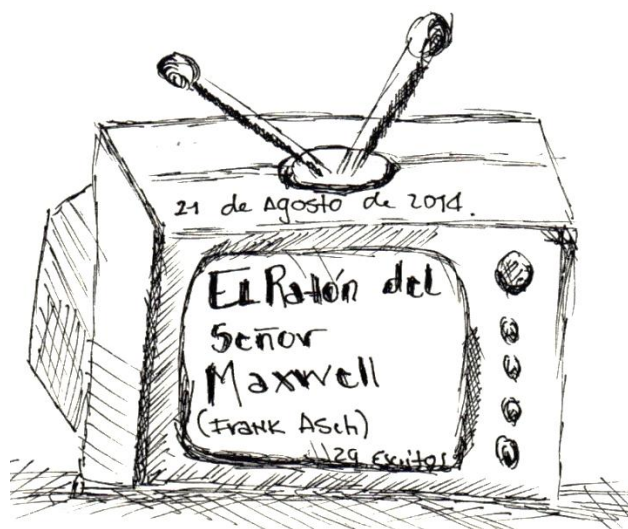 21 de Agosto de 2014.
El Ratón del
Señor
Maxwell
(Frank Asch)
29 Escritos